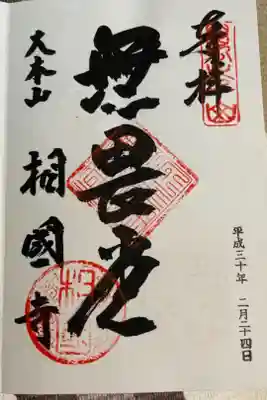 奉拝
平成三十年 二月二十四日
無畏堂
大本山 相國寺